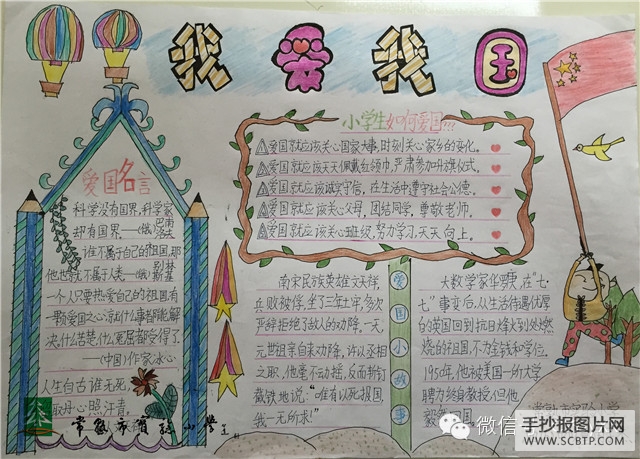 我爱我国
小学生如何爱国!!!
爱国就应该关心国家大事,时刻关心家乡的变化。
爱国就应该天天佩戴红领巾,严肃参加升旗仪式。
爱国就应该诚实守信,在生活中遵守社会公德。
爱国就应该关心父母,团结同学,尊敬老师。
爱国就应该关心班级,努力学习,天天向上。
爱国名言
科学没有国界,科学家
却有国界。——(俄)
谁不属于自己的祖国,那
他也就不属于人类——(俄)
一个人只要热爱自己的祖国,有
一颗爱国之心,就什么事都能解
决,什么苦楚,什么冤屈都受得了。
——(中国)作家冰心
人生自古谁无死,
取丹心照汗青。
常熟市
南宋民族英雄文天祥,
兵败被俘,坐了三年土牢,多次
严辞拒绝了敌人的劝降,一天,
元世祖亲自来劝降,许以丞相
之职,他毫不动摇,反而斩钉
截铁地说:“唯有以死报国,
我一无所求!”
爱国小故事
大数学家华罗庚,在“七·
七”事变后,从生活待遇优厚
的英国回到抗日烽火到处燃
烧的祖国,不为金钱和学位。
1950年,他被美国一所大学
聘为终身教授,但他
微信
手抄报图片网
WWW.SCBTP.COM